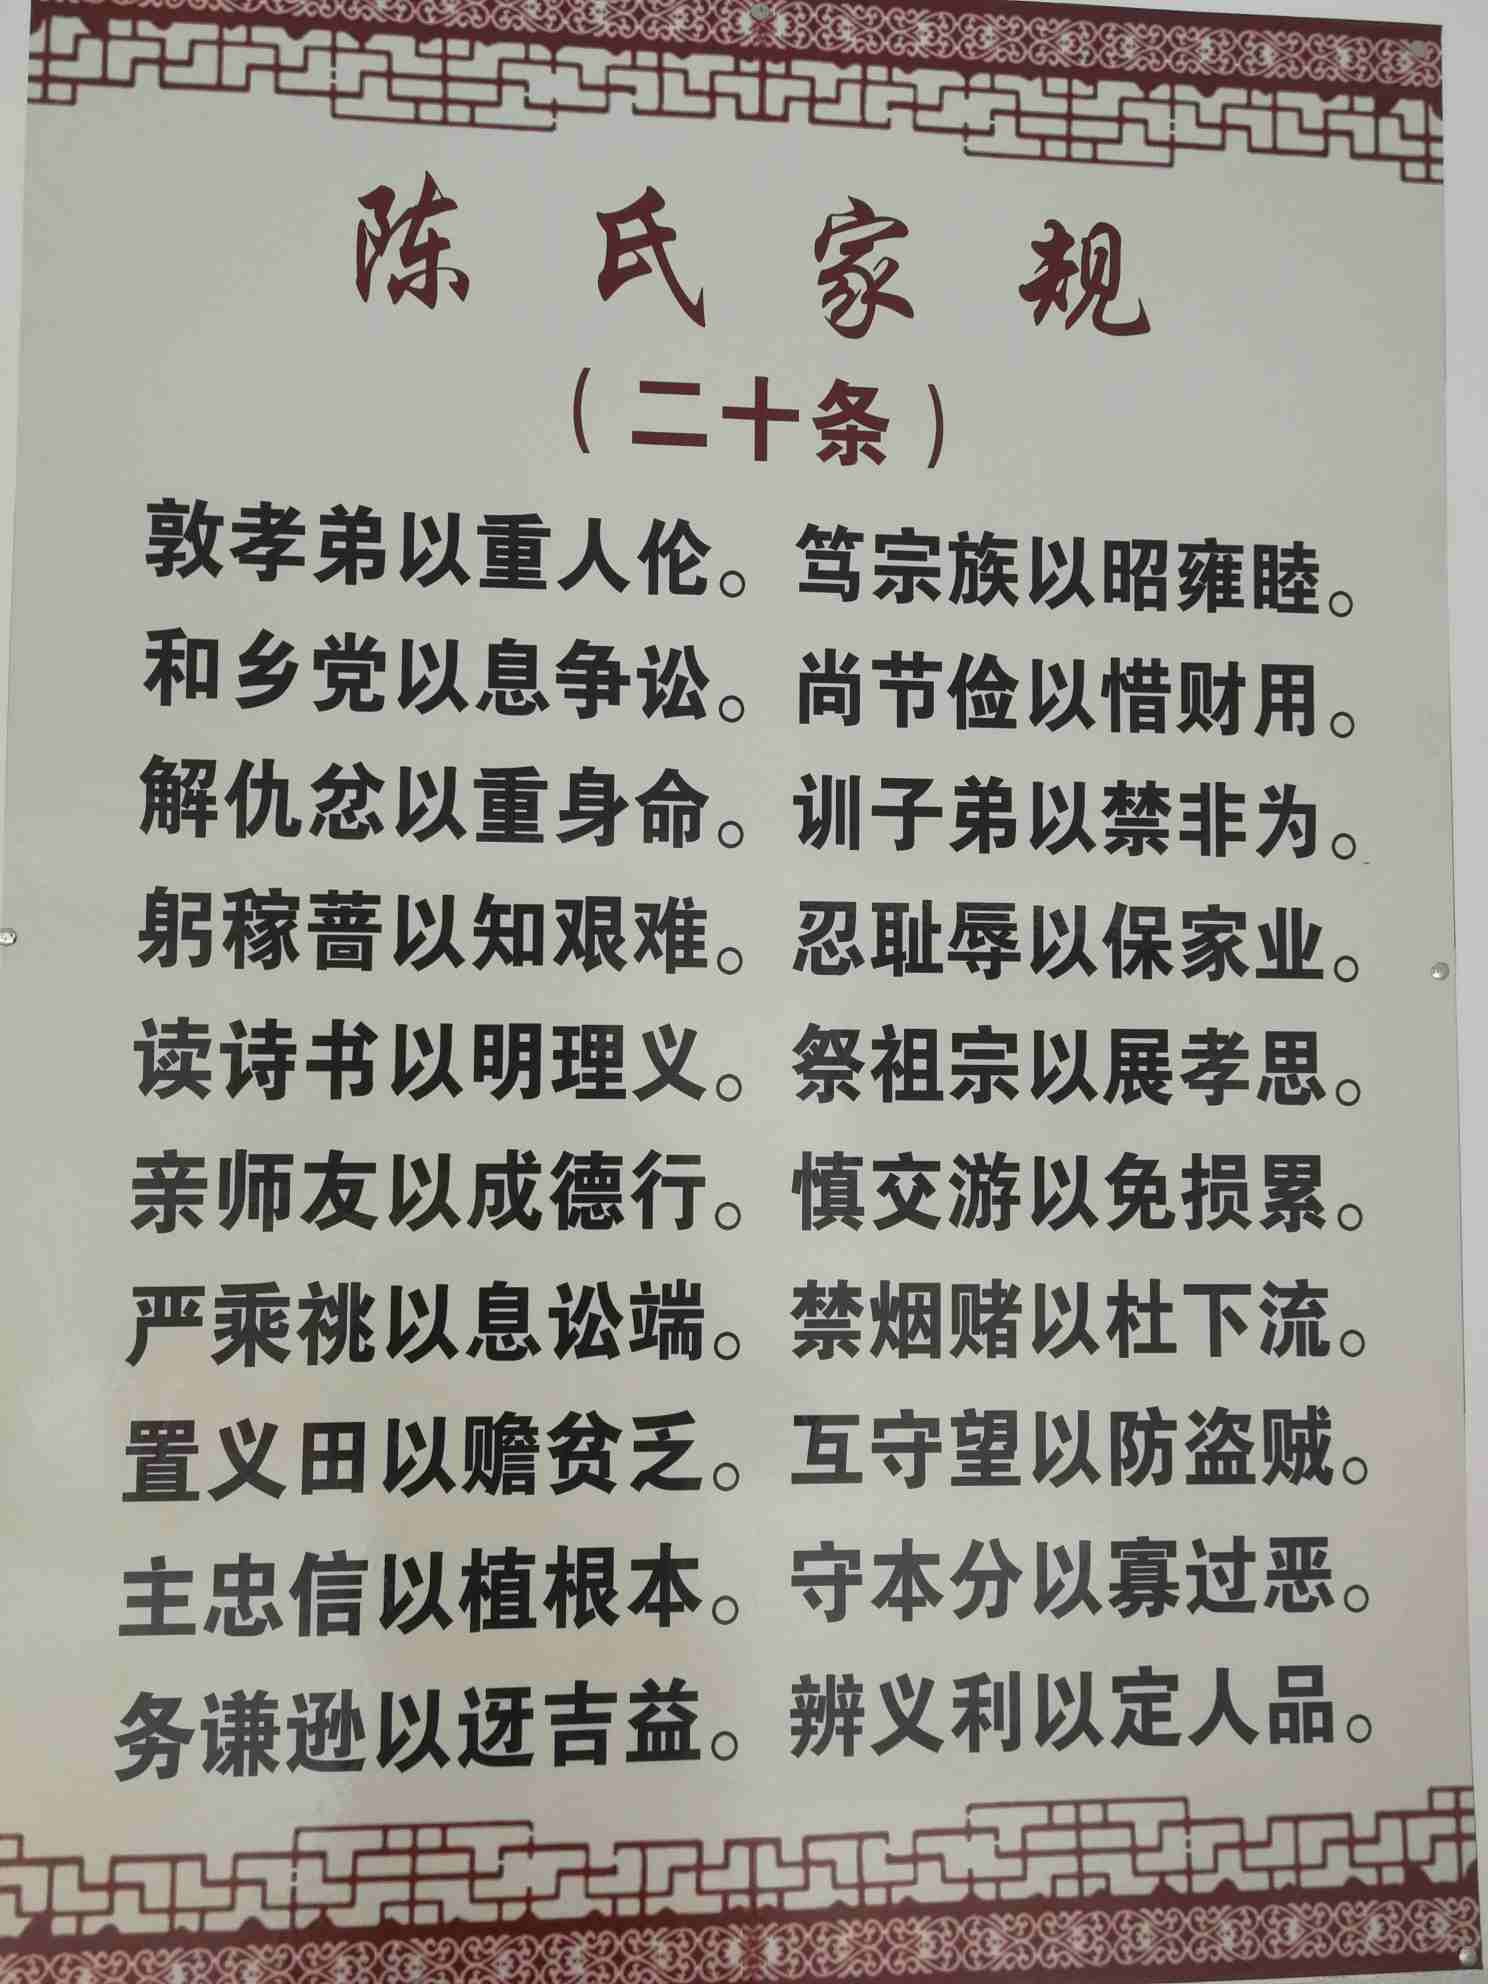 陈氏家规
（二十条）
敦孝弟以重人伦。笃宗族以昭雍睦。
和乡党以息争讼。尚节俭以惜财用。
解仇忿以重身命。训子弟以禁非为。
躬稼蔷以知艰难。忍耻辱以保家业。
读诗书以明理义。祭祖宗以展孝思。
亲师友以成德行。慎交游以免损累。
严乘祧以息讼端。禁烟赌以杜下流。
置义田以赡贫乏。互守望以防盗贼。
主忠信以植根本。守本分以寡过恶。
务谦逊以迓吉益。辨义利以定人品。